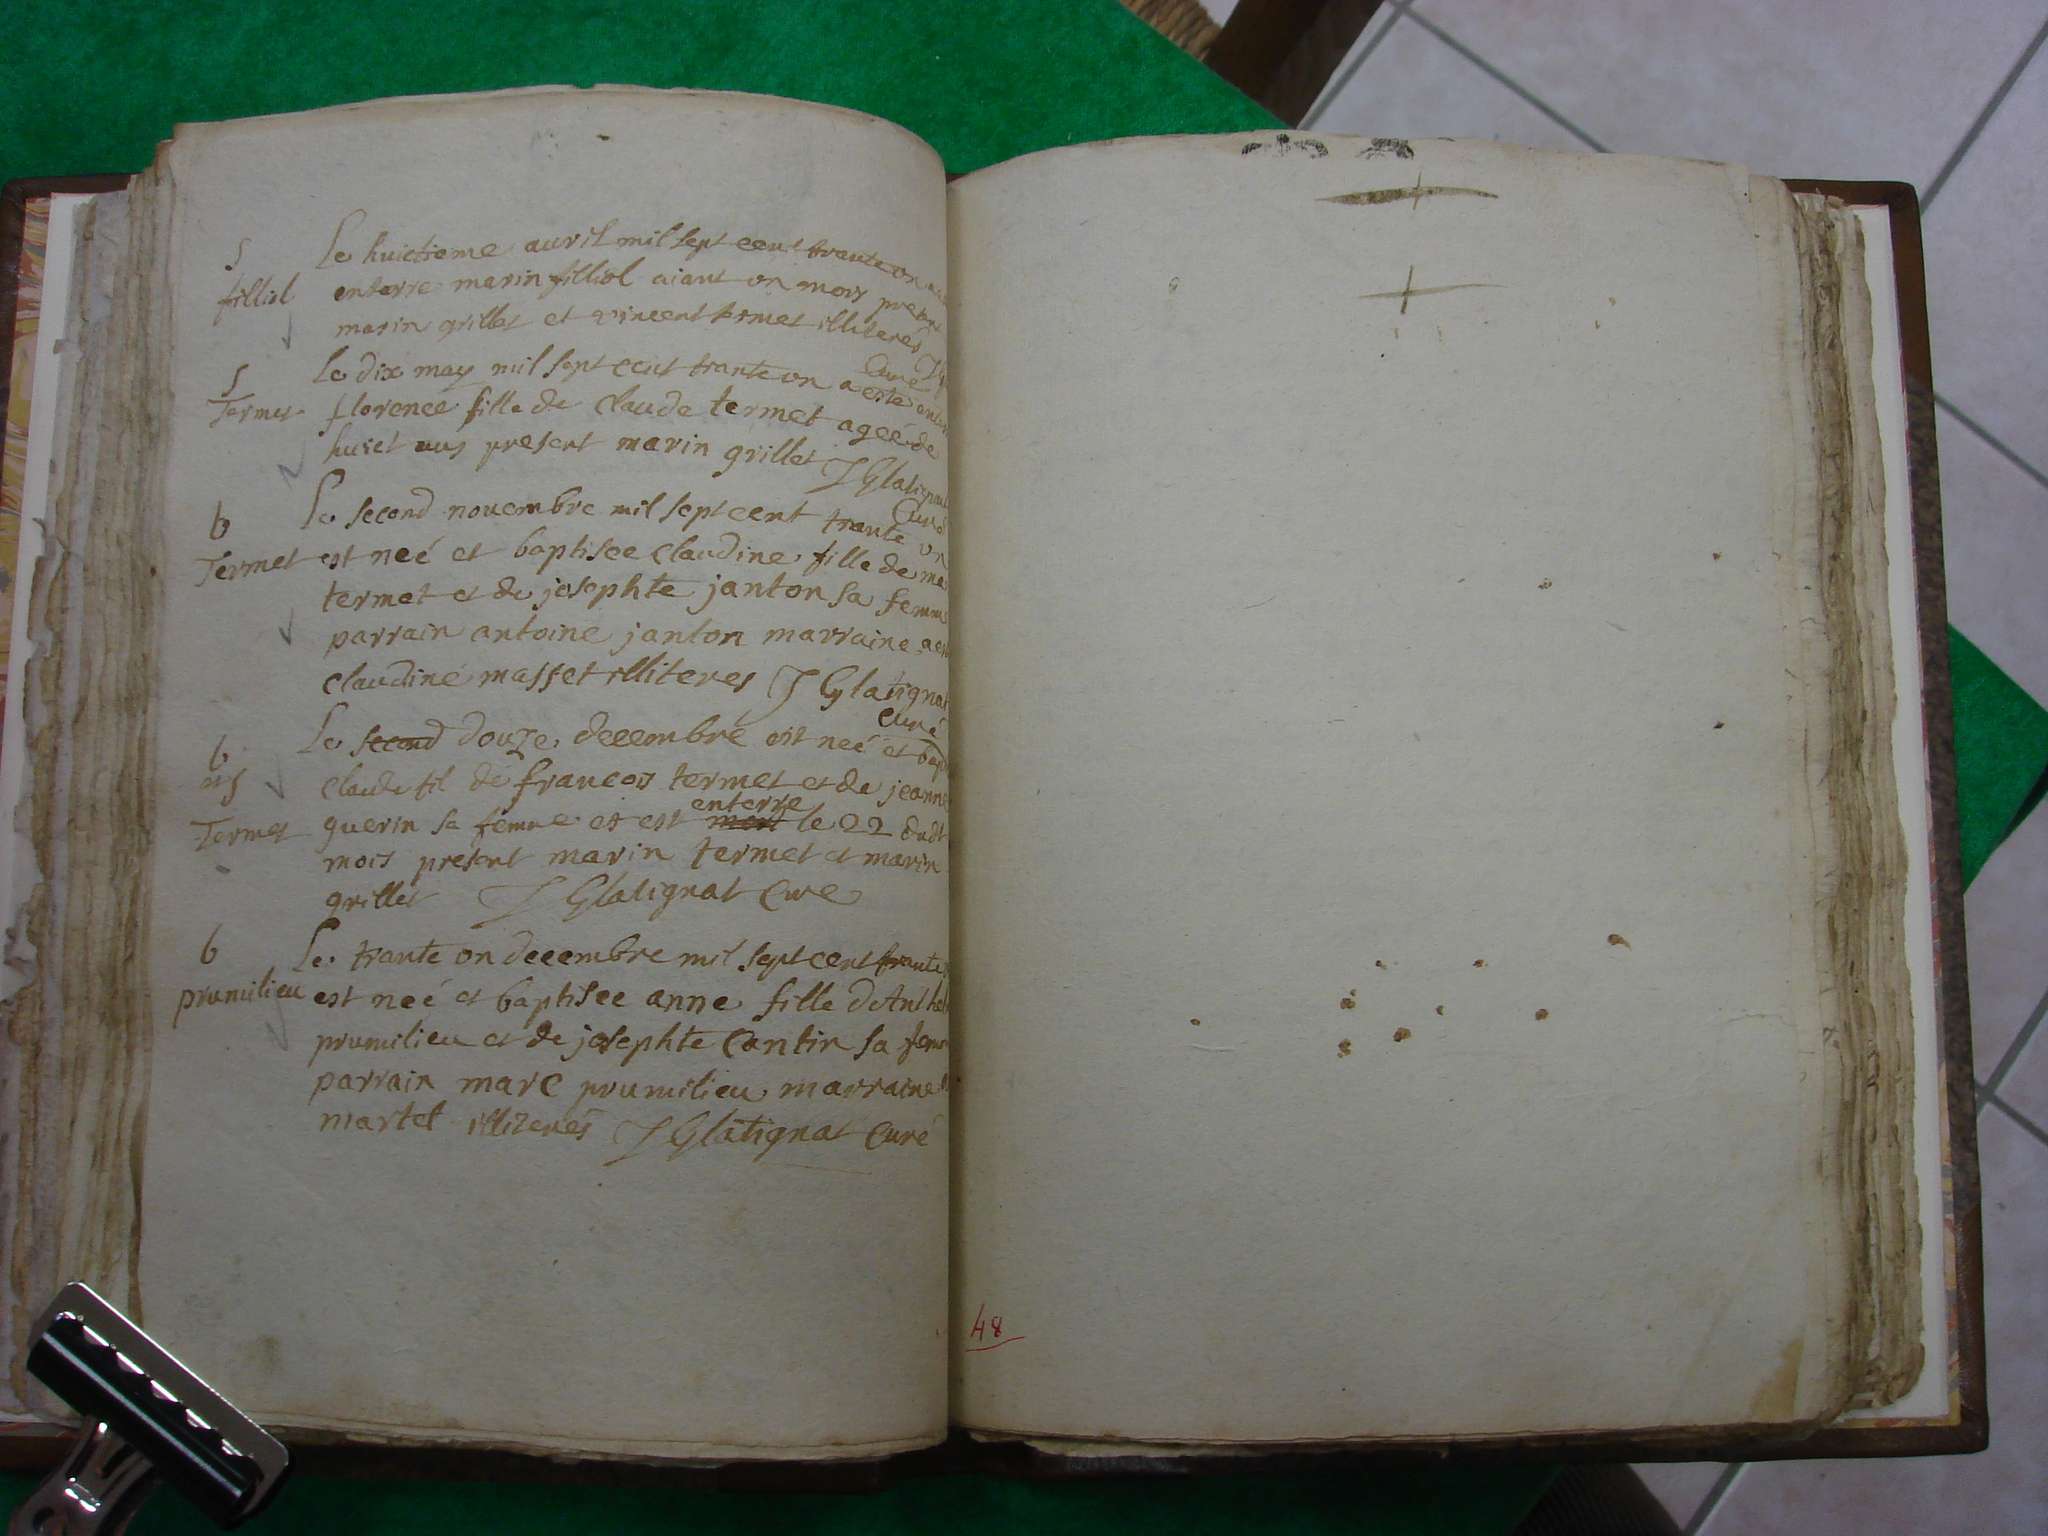 S
filliol
Le huictieme auvril mil sept cent trante on
enterre marin filliol aiant on mois present
marin grillet et vincent termet illiterés
Curé
S
Termet
Le dix may mil sept cent trante on a esté
florence fille de claude termet ageé de
huict ans present marin grillet J Glatignat
Curé
b
Termet
Le second novembre mil sept cent trante on
est neé et baptisee claudine fille de
termet et de josephte janton sa femme
parrain antoine janton marraine
claudine masset illiteres J Glatignat
curé
b
Termet
Le second douze decembre est neé et
claude fil de francois termet et de jeanne
guerin sa femme et est mort enterre le 22 dudt
mois present marin termet et marin
grillet J Glatignat Cure
b
prumilieu
Le trante on decembre mil sept cent trante
est neé et baptisee anne fille
prumilieu et de josephte Cantin sa
parrain marc prumilieu marraine
martel illiterés J Glatignat Curé
48